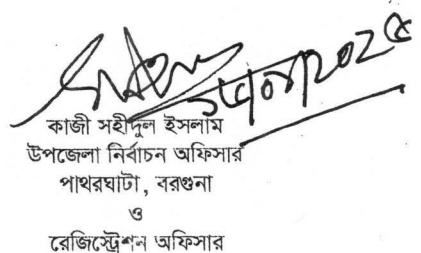 কাজী সহীদুল ইসলাম
উপজেলা নির্বাচন অফিসার
পাথরঘাটা, বরগুনা
ও
রেজিস্ট্রেশন অফিসার